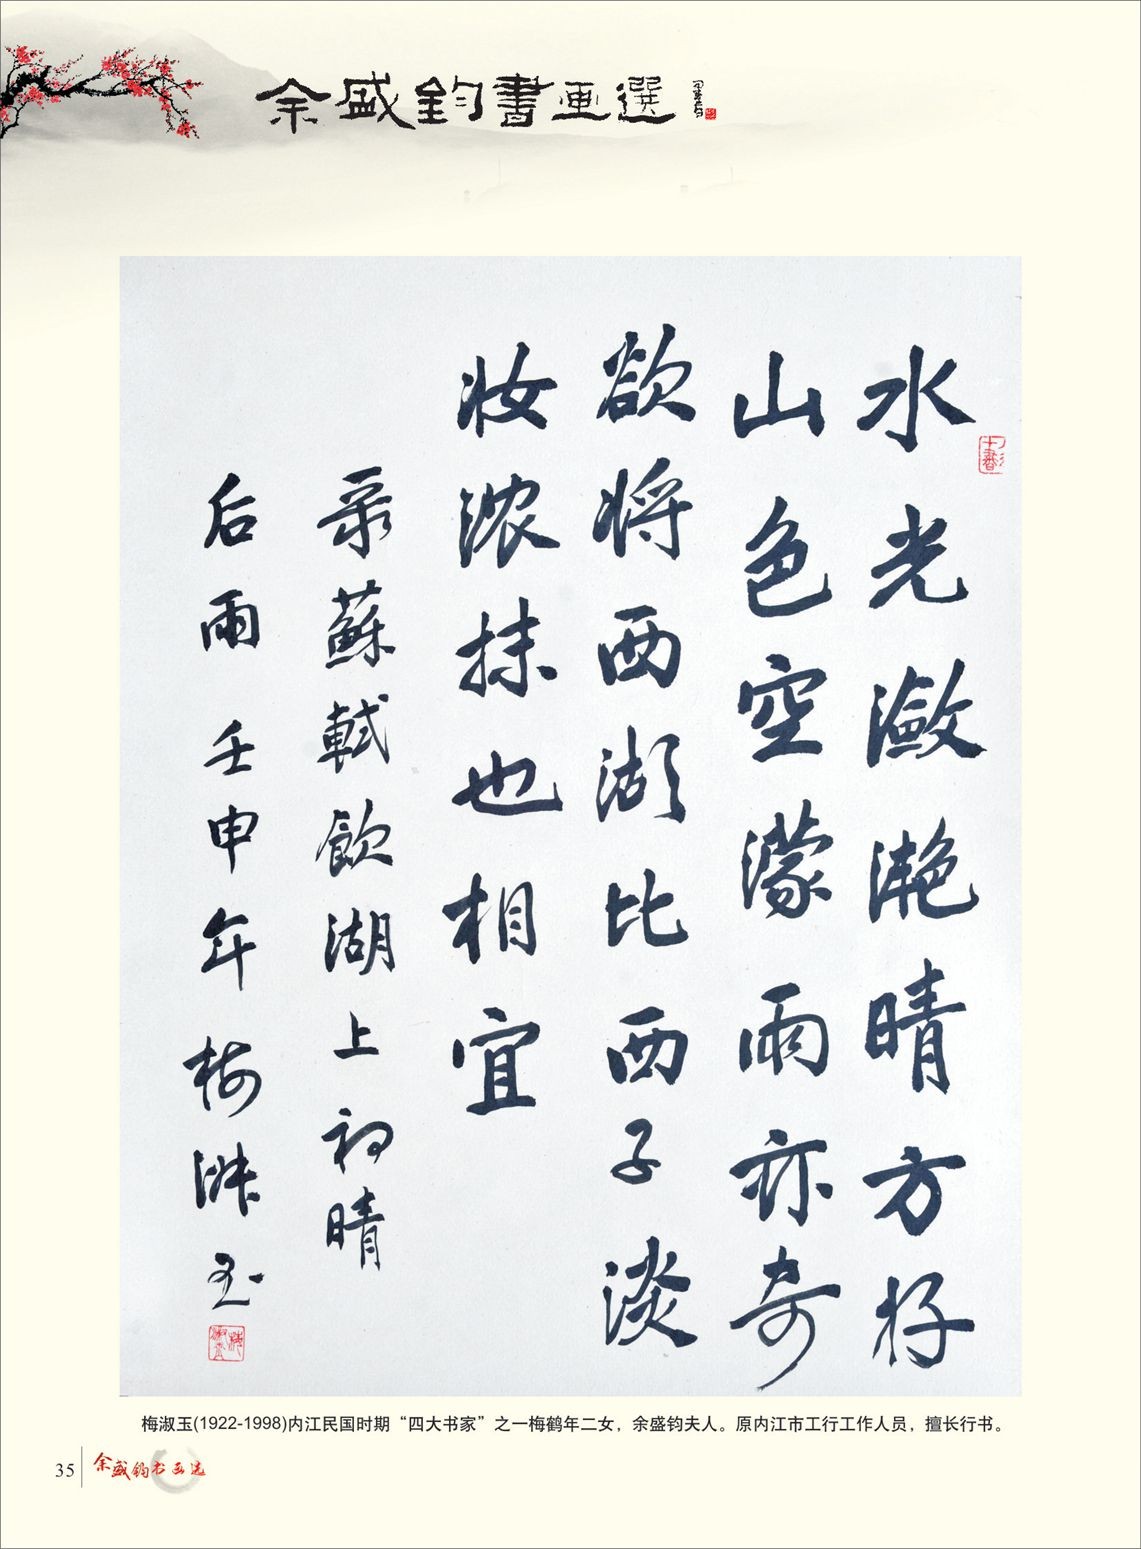 余盛鈞書画選
水光瀲滟晴方好
山色空濛雨亦奇
欲将西湖比西子淡
妆浓抹也相宜
录蘇軾飲湖上初晴
后雨 壬申年 梅淑玉
梅淑玉
梅淑玉(1922-1998)内江民国时期“四大书家”之一梅鹤年二女，余盛钧夫人。原内江市工行工作人员，擅长行书。
35
余盛钧书画选